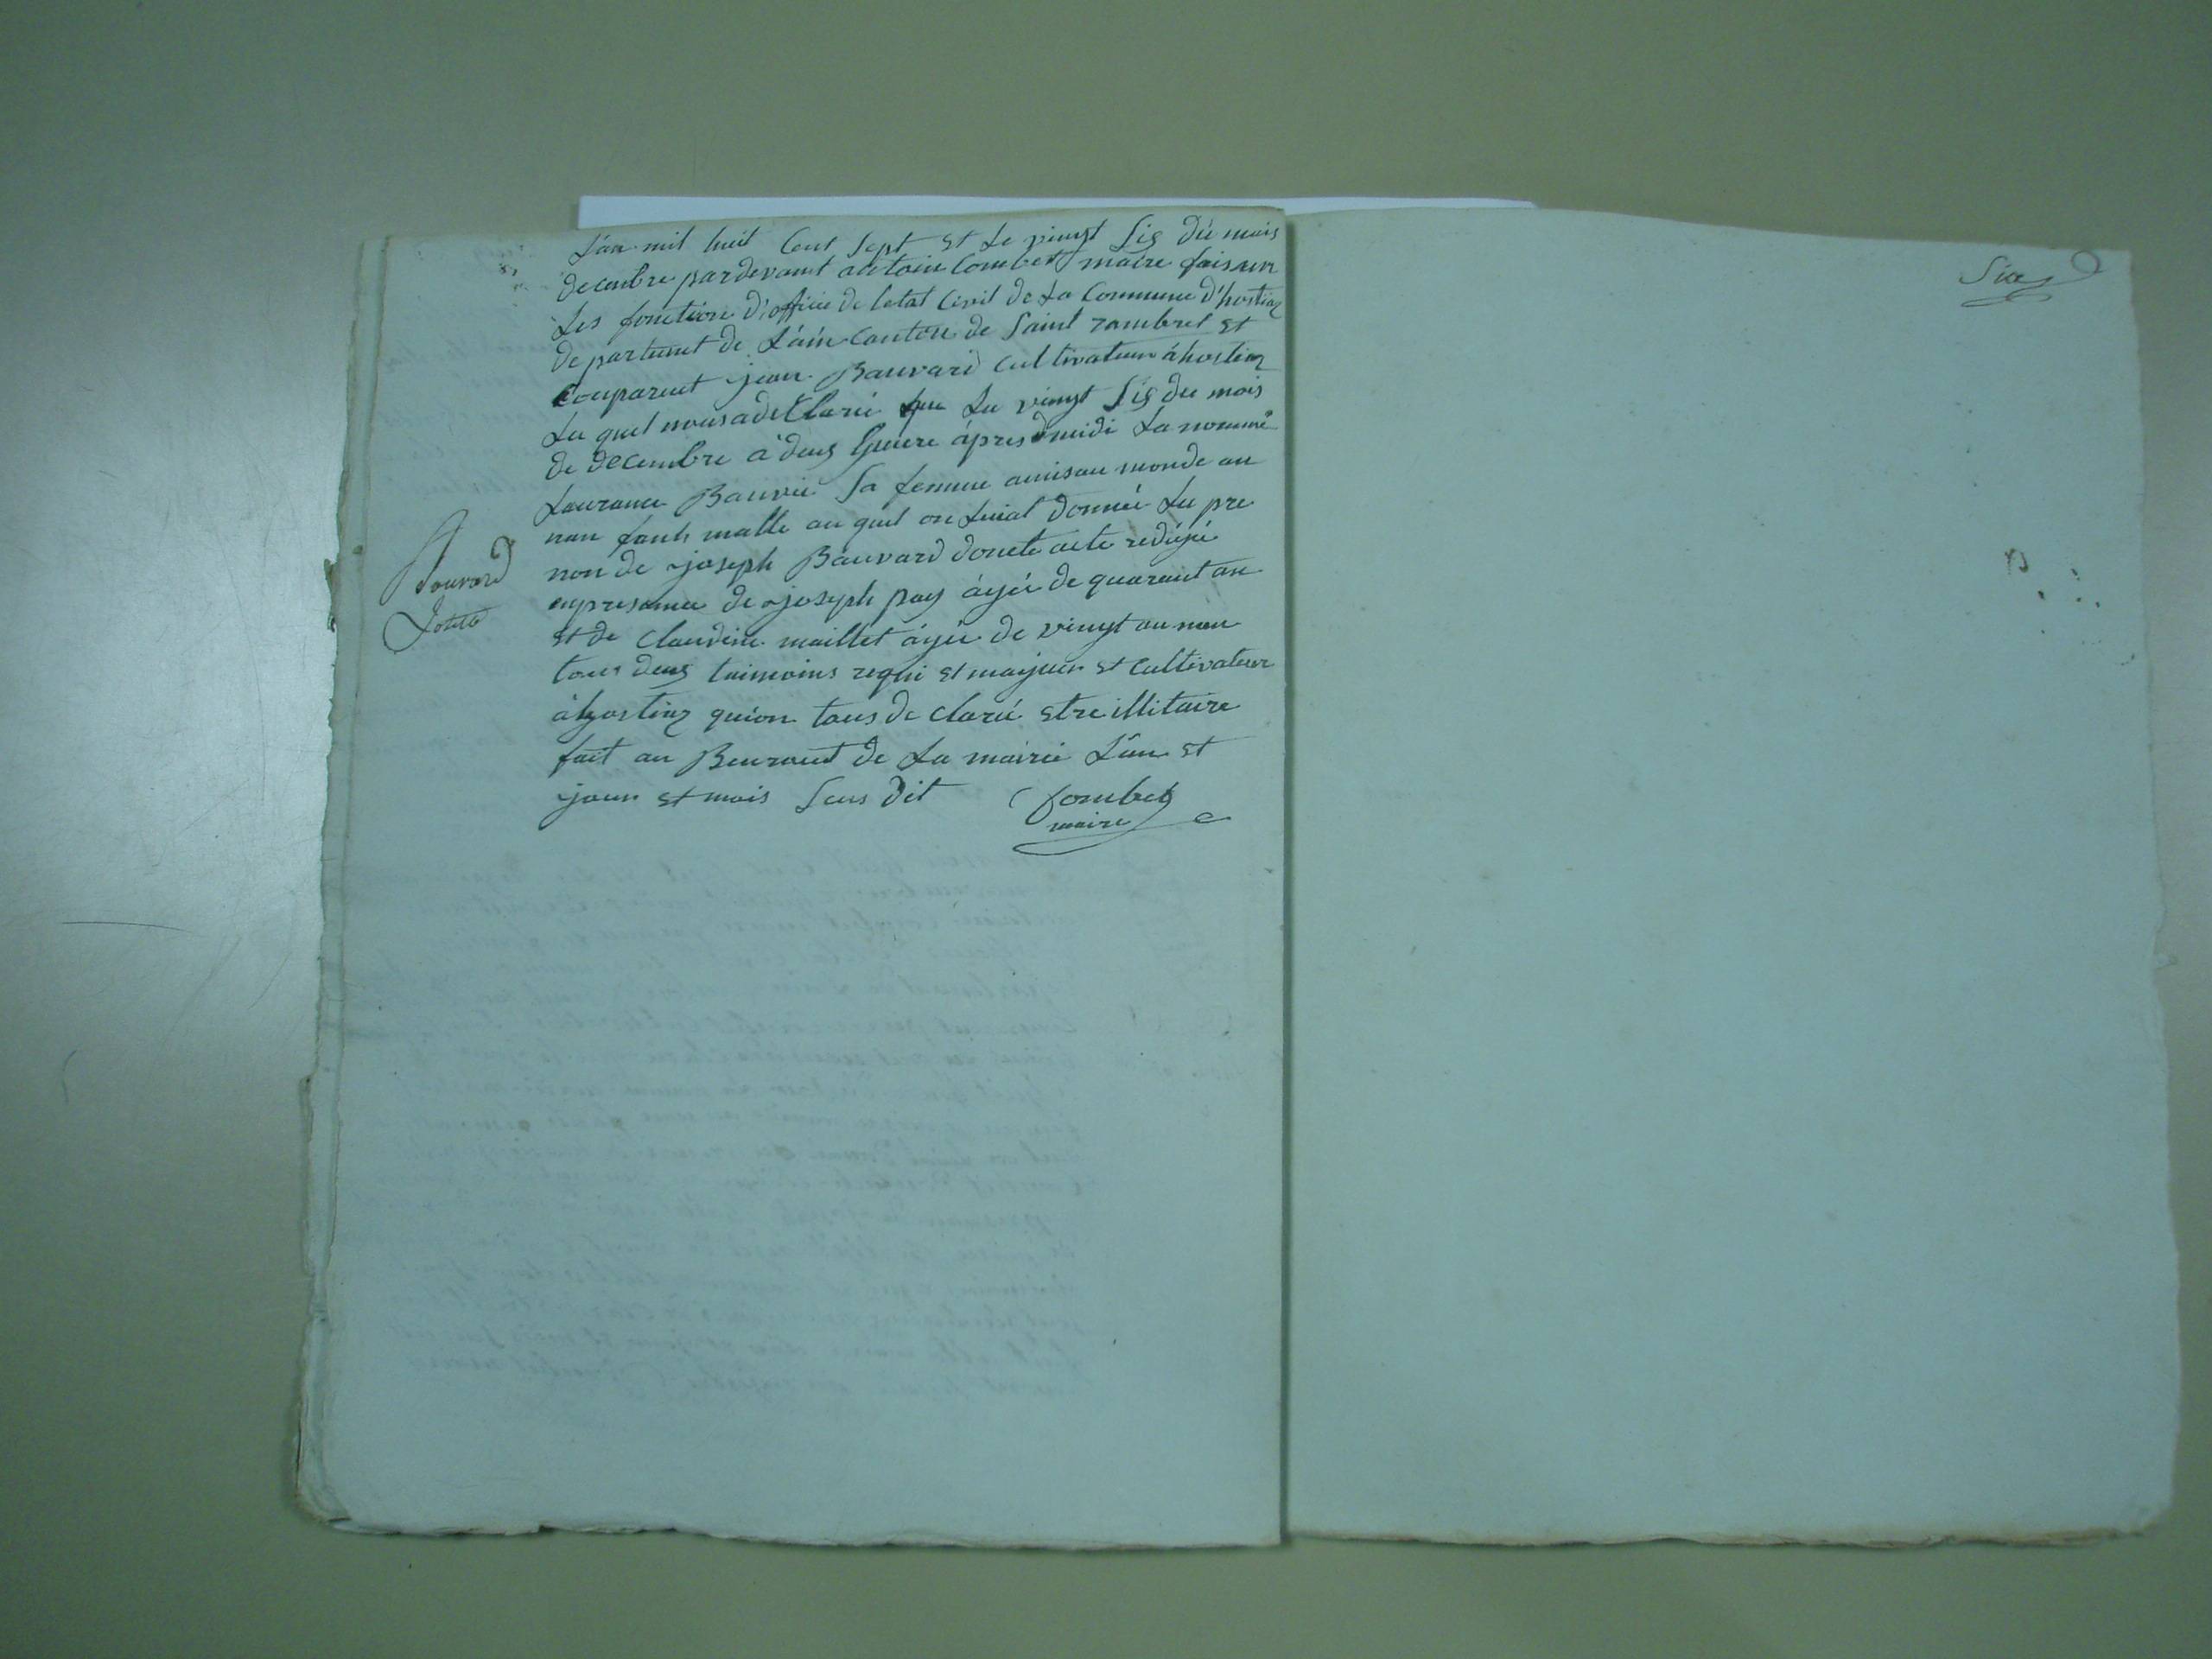 L'an mil huit Cent Sept et Le vingt Sis du mois
decenbre pardevant antoine Combet maire faisan
Les fonctions d'officie de letat Civil de La Commune d'hostiaz
departemet de L'ain Canton de Saint rambret et
Comparuet jean Bauvard Cultivateur à hostiaz
Le quel nous a deClaré que Le vingt Sis du mois
de decembre à deus heure àpres midi La nommé
Laurance Bauvié Sa femme a mis au monde an
nan fanh malle au quel on Luiat donnée Le pre
non de joseph Bauvard donete acte redigé
enpresance de joseph pay àgée de quarant an
et de Claudine maillet àgée de vingt au nan
tous deus taimoins requi et majeur et Cultivateur
à hostiaz qui on tous de claré etre illitaire
fait au Bureaut de La mairie L'an et
jour et mois Sus dit Combet
maire
Bouvard
Joseph
Six